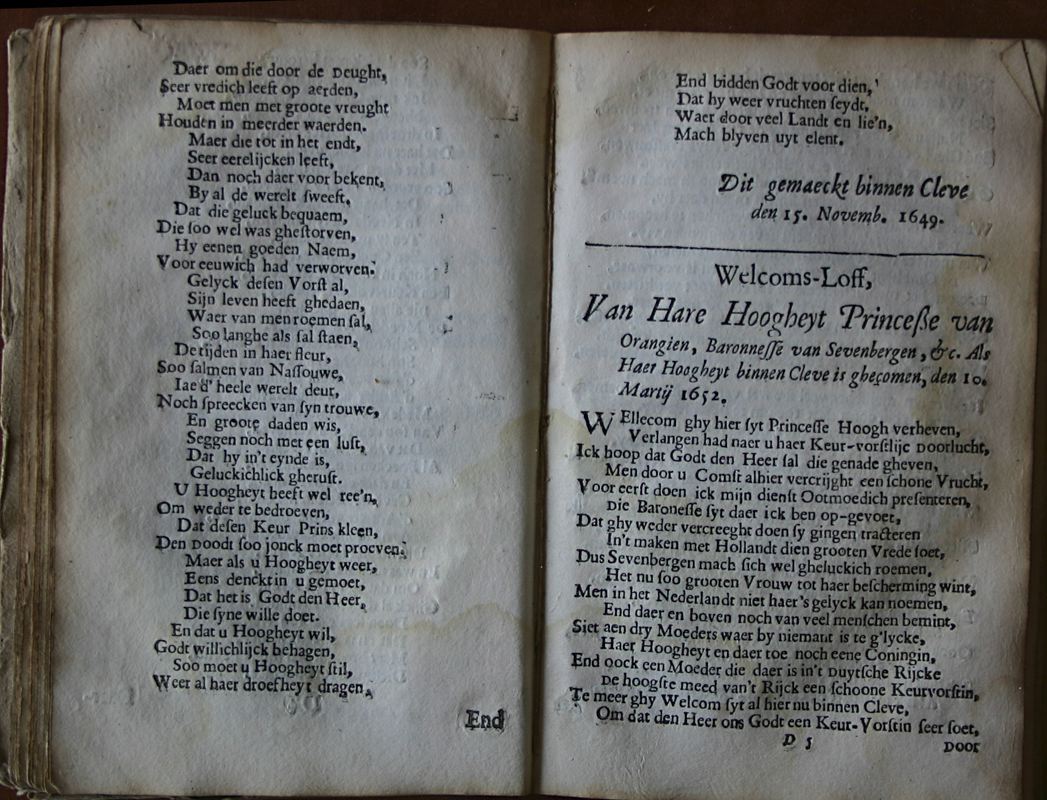 Daer om die door de Deught,
Seer vredich leeft op aerden,
Moet men met groote vreught
Houden in meerder waerden.
Maer die tot in het endt,
Seer eerelijcken leeft,
Dan noch daer voor bekent,
By al de werelt sweeft,
Dat die geluck bequaem,
Die soo wel was ghestorven,
Hy eenen goeden Naem,
Voor eeuwich had verworven:
Gelyck desen Vorst al,
Sijn leven heeft ghedaen,
Waer van men roemen sal,
Soo langhe als sal staen,
De tijden in haer fleur,
Soo salmen van Nassouwe,
Iae d' heele werelt deur,
Noch spreecken van syn trouwe,
En groote daden wis,
Seggen noch met een lust,
Dat hy in't eynde is,
Geluckichlick gherust.
U Hoogheyt heeft wel ree'n,
Om weder te bedroeven,
Dat desen Keur Prins kleen,
Den Doodt soo jonck moet proeven:
Maer als u Hoogheyt weer,
Eens denckt in u gemoet,
Dat het is Godt den Heer,
Die syne wille doet.
En dat u Hoogheyt wil,
Godt willichlijck behagen,
Soo moet u Hoogheyt stil,
Weer al haer droefheyt dragen,
End
End bidden Godt voor dien,
Dat hy weer vruchten seydt,
Waer door veel Landt en lie'n,
Mach blyven uyt elent.
Dit gemaeckt binnen Cleve
den 15. Novemb. 1649.
Welcoms-Loff,
Van Hare Hoogheyt Princesse van
Orangien, Baronnesse van Sevenbergen, &c. Als
Haer Hoogheyt binnen Cleve is ghecomen, den 10.
Martij 1652.
WEllecom ghy hier syt Princesse Hoogh verheven,
Verlangen had naer u haer Keur-vorstlijc Doorlucht,
Ick hoop dat Godt den Heer sal die genade gheven,
Men door u Comst alhier vercrijght een schone Vrucht,
Voor eerst doen ick mijn dienst Ootmoedich presenteren,
Die Baronesse syt daer ick ben op-gevoet,
Dat ghy weder vercreeght doen sy gingen tracteren
In't maken met Hollandt dien grooten Vrede soet,
Dus Sevenbergen mach sich wel gheluckich roemen,
Het nu soo grooten Vrouw tot haer bescherming wint,
Men in het Nederlandt niet haer's gelyck kan noemen,
End daer en boven noch van veel menschen bemint,
Siet aen dry Moeders waer by niemant is te g'lycke,
Haer Hoogheyt en daer toe noch eene Coningin,
End oock een Moeder die daer is in't Duytsche Rijcke
De hoogste meed van't Rijck een schoone Keurvorstin,
Te meer ghy Welcom syt al hier nu binnen Cleve,
Om dat den Heer ons Godt een Keur-Vorstin seer soet,
D 5
Door